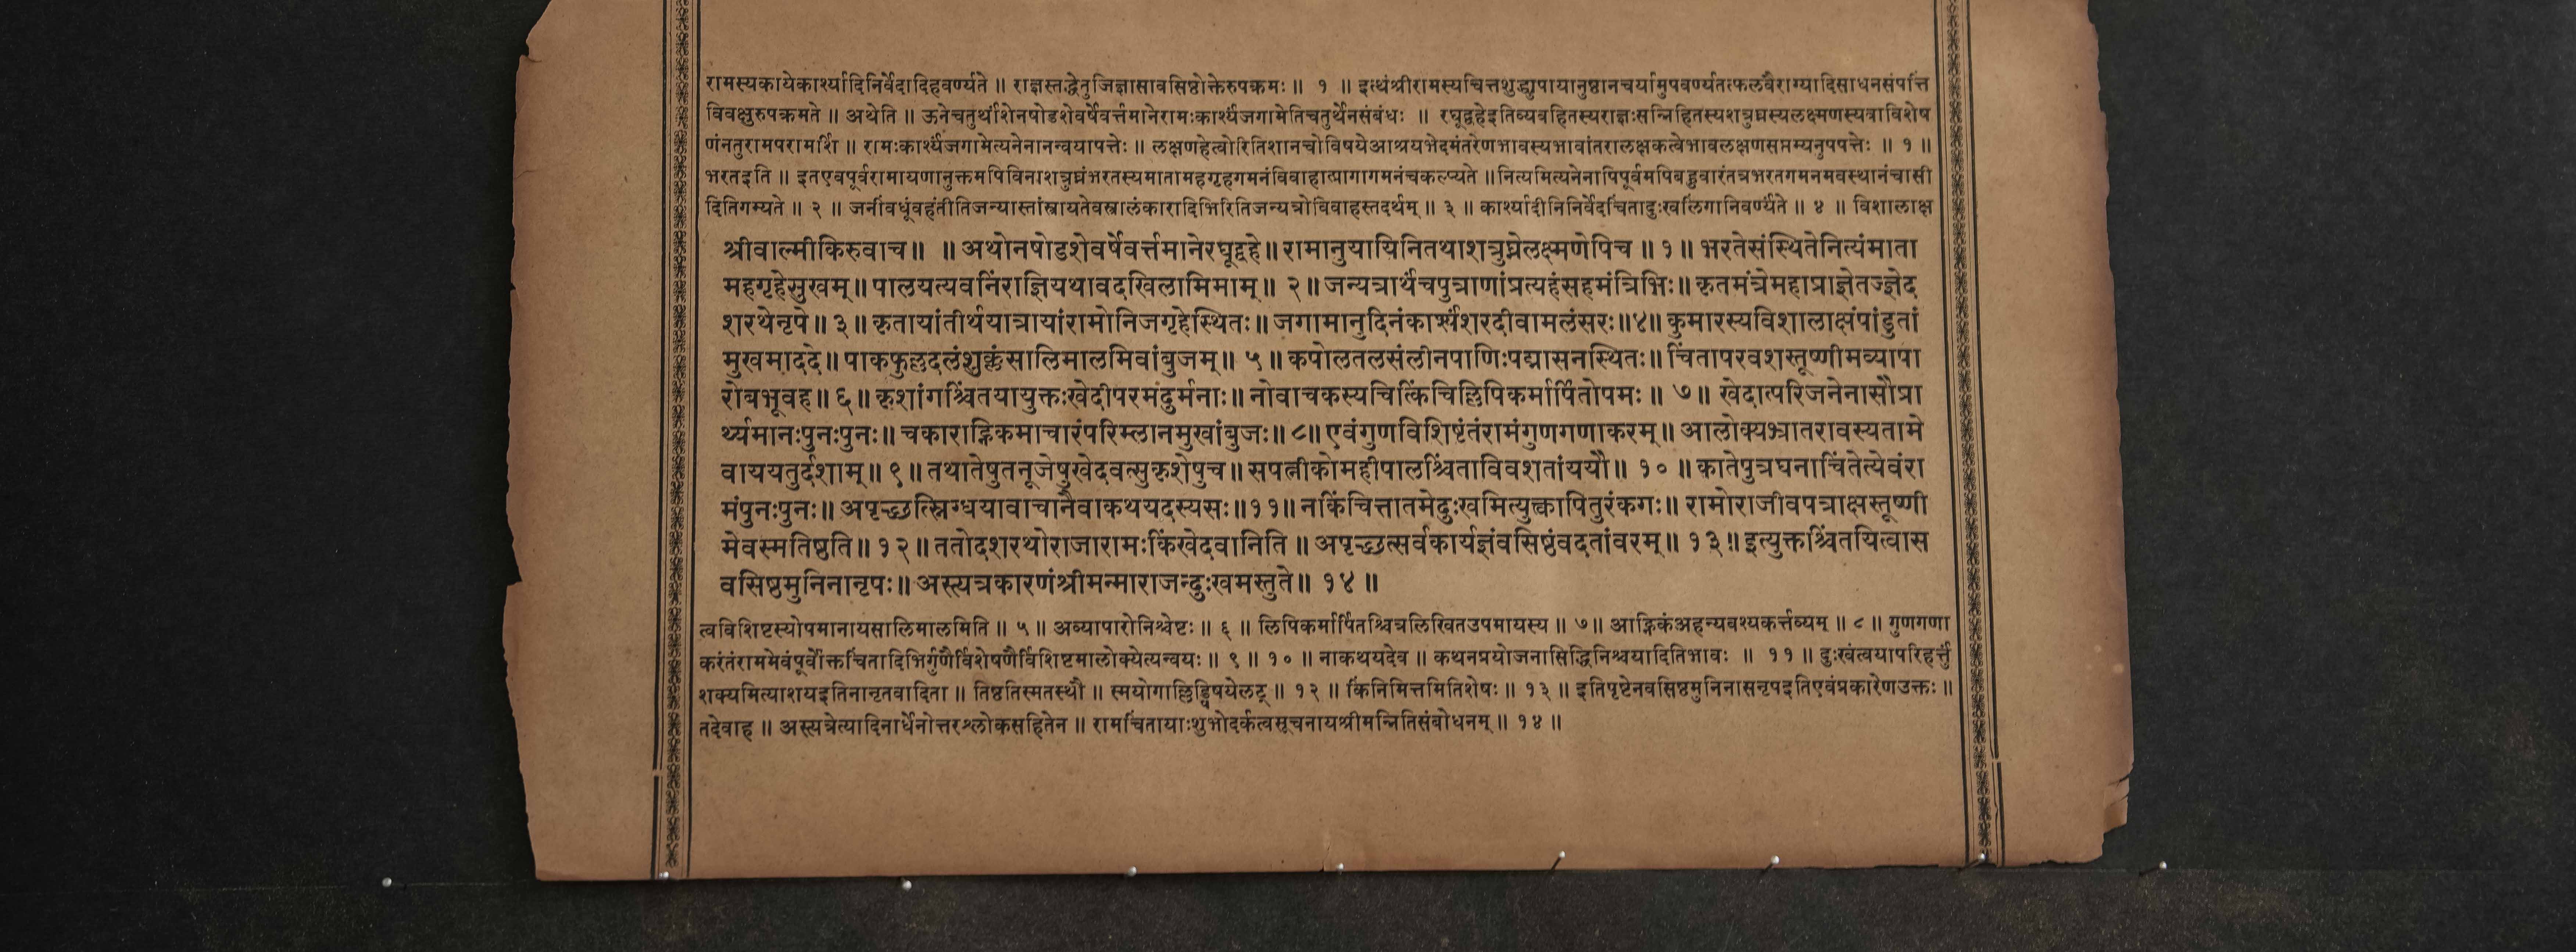 रामस्यकायेकार्श्यादिनिर्वेदादिहवर्ण्यते ॥ राज्ञस्तद्धेतुजिज्ञासावसिष्ठोक्तेरुपक्रमः ॥ १ ॥ इत्थंश्रीरामस्यचित्तशुद्ध्युपायानुष्ठानचर्यामुपवर्ण्यतत्फलवैराग्यादिसाधनसंपत्तिं
विवक्षुरुपक्रमते ॥ अथेति ॥ ऊनेचतुर्थांशेनषोडशेवर्षेवर्त्तमानेरामःकार्श्यंजगामेतिचतुर्थेनसंबंधः ॥ रघूद्वहेइतिव्यवहितस्यराज्ञःसन्निहितस्यशत्रुघ्नस्यलक्ष्मणस्यवाविशेष
णंनतुरामपरामर्शि ॥ रामःकार्श्यंजगामेत्यनेनानन्वयापत्तेः ॥ लक्षणहेत्वोरितिशानचोविषयेआश्रयभेदमंतरेणभावस्यभावांतरालक्षकत्वेभावलक्षणसप्तम्यनुपपत्तेः ॥ १ ॥
भरतइति ॥ इतएवपूर्वरामायणानुक्तमपिविनाशत्रुघ्नंभरतस्यमातामहगृहगमनंविवाहात्प्रागागमनंचकल्प्यते ॥ नित्यमित्यनेनापिपूर्वमपिबहुवारंतत्रभरतगमनमवस्थानंचासी
दितिगम्यते ॥ २ ॥ जनींवधूंवहंतीतिजन्यास्तांस्त्रायतेवस्त्रालंकारादिभिरितिजन्यत्रोविवाहस्तदर्थम् ॥ ३ ॥ कार्श्यादीनिनिर्वेदचिंतादुःखलिंगानिवर्ण्यंते ॥ ४ ॥ विशालाक्ष
श्रीवाल्मीकिरुवाच ॥ ॥ अथोनषोडशेवर्षेवर्त्तमानेरघूद्वहे ॥ रामानुयायिनितथाशत्रुघ्नेलक्ष्मणेपिच ॥ १ ॥ भरतेसंस्थितेनित्यंमाता
महगृहेसुखम् ॥ पालयत्यवनिंराज्ञियथावदखिलामिमाम् ॥ २ ॥ जन्यत्रार्थंचपुत्राणांप्रत्यहंसहमंत्रिभिः ॥ कृतमंत्रेमहाप्राज्ञेतज्ज्ञेद
शरथेनृपे ॥ ३ ॥ कृतायांतीर्थयात्रायांरामोनिजगृहेस्थितः ॥ जगामानुदिनंकार्श्यंशरदीवामलंसरः ॥ ४ ॥ कुमारस्यविशालाक्षंपांडुतां
मुखमाददे ॥ पाकफुल्लदलंशुक्लंसालिमालमिवांबुजम् ॥ ५ ॥ कपोलतलसंलीनपाणिःपद्मासनस्थितः ॥ चिंतापरवशस्तूष्णीमव्यापा
रोबभूवह ॥ ६ ॥ कृशांगश्चिंतयायुक्तःखेदीपरमदुर्मनाः ॥ नोवाचकस्यचित्किंचिल्लिपिकर्मार्पितोपमः ॥ ७ ॥ खेदात्परिजनेनासौप्रा
र्थ्यमानःपुनःपुनः ॥ चकाराह्निकमाचारंपरिम्लानमुखांबुजः ॥ ८ ॥ एवंगुणविशिष्टंतंरामंगुणगणाकरम् ॥ आलोक्यभ्रातरावस्यतामे
वाययतुर्दशाम् ॥ ९ ॥ तथातेषुतनूजेषुखेदवत्सुकृशेषुच ॥ सपत्नीकोमहीपालश्चिंताविवशतांययौ ॥ १० ॥ कातेपुत्रघनाचिंतेत्येवंरा
मंपुनःपुनः ॥ अपृच्छत्स्निग्धयावाचानैवाकथयदस्यसः ॥ ११ ॥ नकिंचित्तातमेदुःखमित्युक्त्वापितुरंकगः ॥ रामोराजीवपत्राक्षस्तूष्णी
मेवस्मतिष्ठति ॥ १२ ॥ ततोदशरथोराजारामःकिंखेदवानिति ॥ अपृच्छत्सर्वकार्यज्ञंवसिष्ठंवदतांवरम् ॥ १३ ॥ इत्युक्तश्चिंतयित्वास
वसिष्ठमुनिनानृपः ॥ अस्त्यत्रकारणंश्रीमन्माराजन्दुःखमस्तुते ॥ १४ ॥
त्वविशिष्टस्योपमानायसालिमालमिति ॥ ५ ॥ अव्यापारोनिश्चेष्टः ॥ ६ ॥ लिपिकर्मार्पितश्चित्रलिखितउपमायस्य ॥ ७ ॥ आह्निकंअहन्यवश्यकर्त्तव्यम् ॥ ८ ॥ गुणगणा
करंतंराममेवंपूर्वोक्तचिंतादिभिर्गुणैर्विशेषणैर्विशिष्टमालोक्येत्यन्वयः ॥ ९ ॥ १० ॥ नाकथयदेव ॥ कथनप्रयोजनासिद्धिनिश्चयादितिभावः ॥ ११ ॥ दुःखंत्वयापरिहर्त्तुं
शक्यमित्याशयइतिनानृतवादिता ॥ तिष्ठतिस्मतस्थौ ॥ स्मयोगाल्लिड्विषयेलट् ॥ १२ ॥ किंनिमित्तमितिशेषः ॥ १३ ॥ इतिपृष्टेनवसिष्ठमुनिनासनृपइतिएवंप्रकारेणउक्तः ॥
तदेवाह ॥ अस्त्यत्रेत्यादिनार्धेनोत्तरश्लोकसहितेन ॥ रामचिंतायाःशुभोदर्कत्वसूचनायश्रीमन्नितिसंबोधनम् ॥ १४ ॥